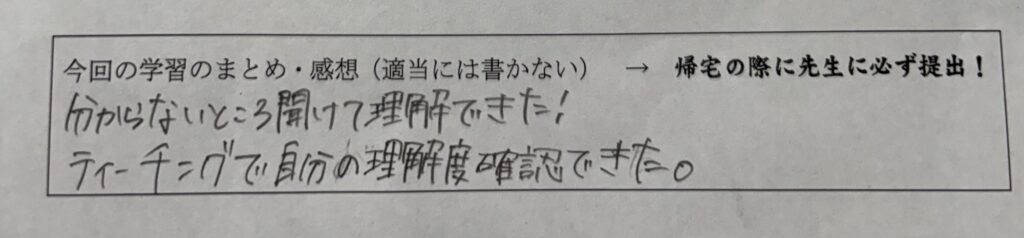 今回の学習のまとめ・感想（適当には書かない）　→　帰宅の際に先生に必ず提出！
分からないところ聞けて理解できた！
ティーチングで自分の理解度確認できた。